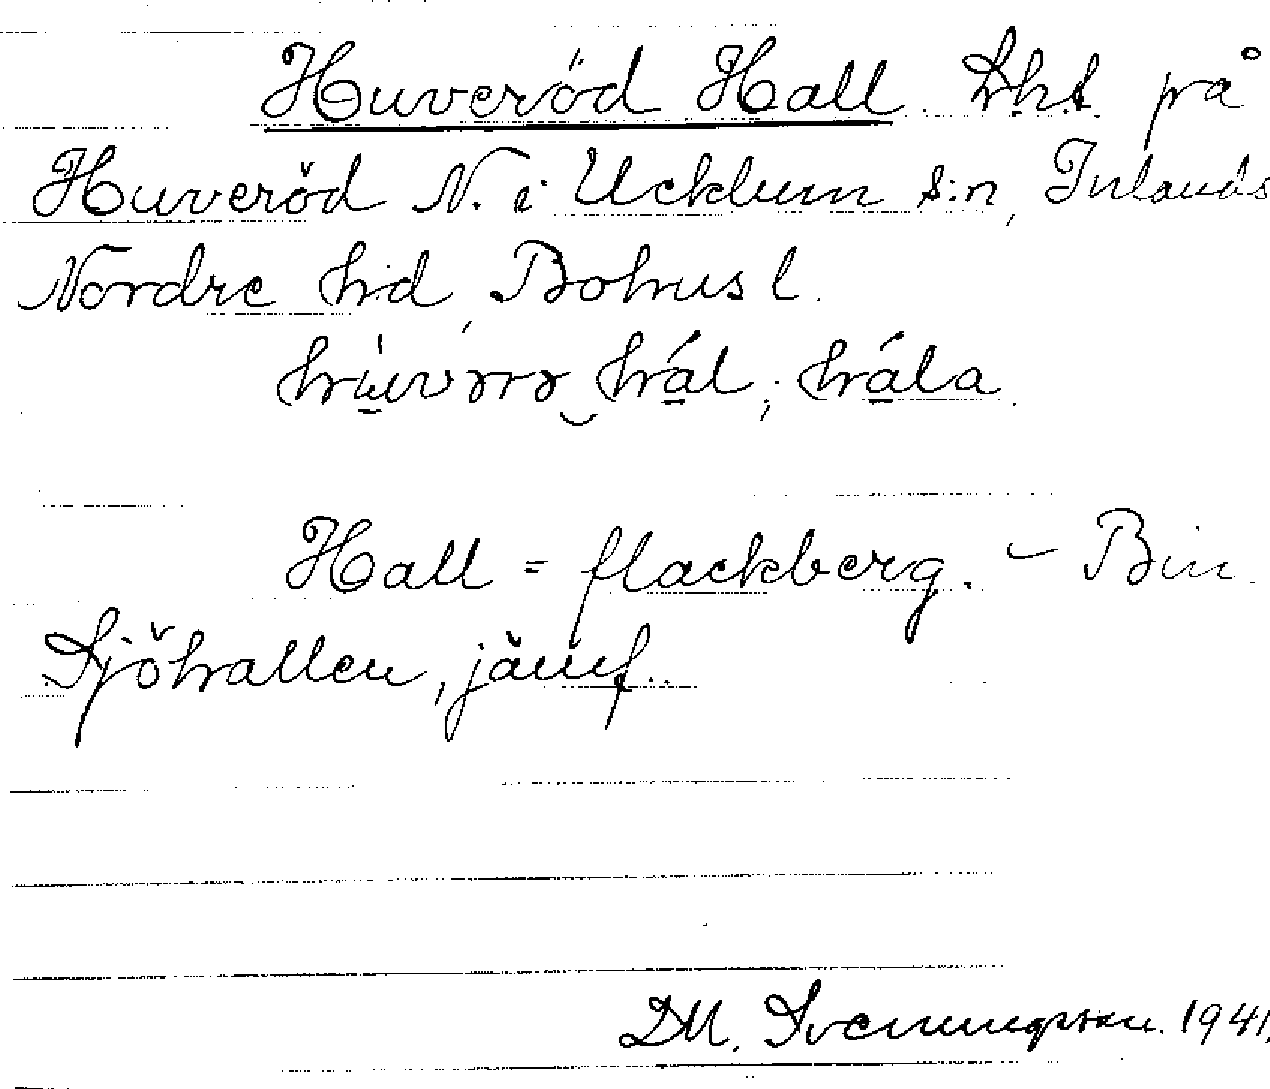 Huveröd Hall. Lht på
Huveröd N. i Ucklum s:n, Inlands
Nordre hd, Bohusl.
hál; hála.
Hall = flackberg. – Bin.
Sjöhallen, jämf.
DM. Svenningsson. 1941.